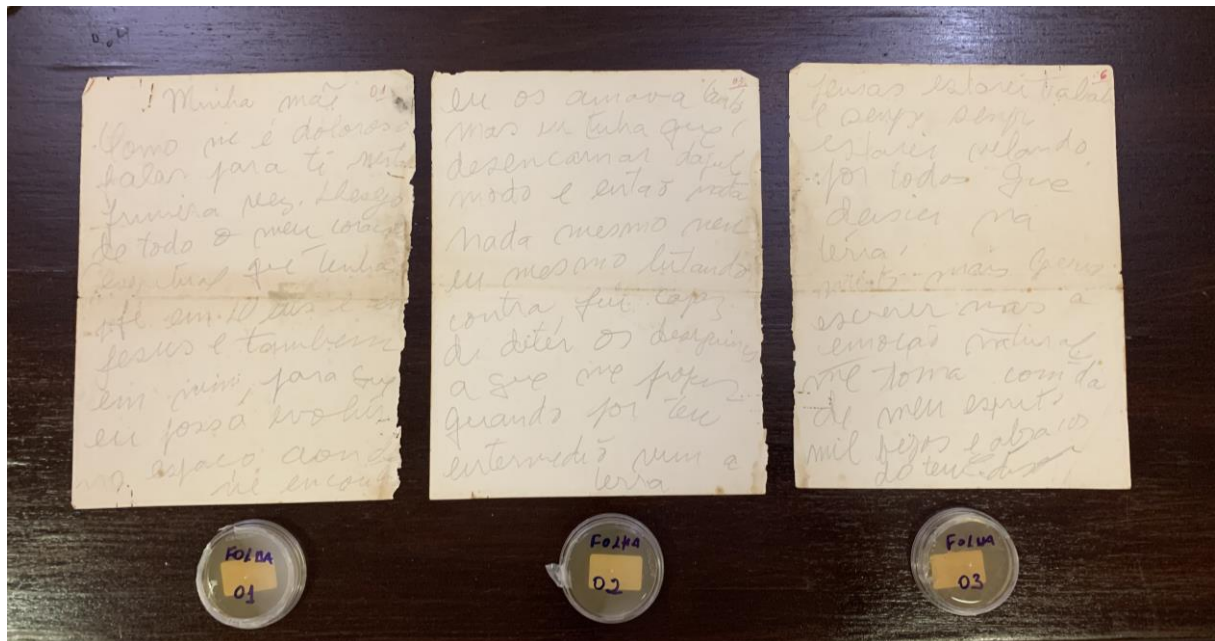 Minha mãe 01
Como me é doloroso
falar para ti nesta
primeira vez.
de todo o meu coração
espiritual que tenhas
fé em Deus e em
Jesus e também
em mim, para que
eu possa evoluir
no espaço aonde
me encont
eu os amava tanto
mas eu tinha que
desencarnar daquele
modo e então
nada mesmo nem
eu mesmo lutando
contra, fui capaz
de deter os desígnios
a que me propus
quando por teu
intermedio vim a
terra
pensas estarei trabalh
e sempre sempre
estarei velando
por todos que
deixei na
terra,
muito mais queria
escrever mas a
emoção natural
me toma conta
de meu espirito
mil beijos e abraços
do teu
FOLHA
01
FOLHA
02
FOLHA
03